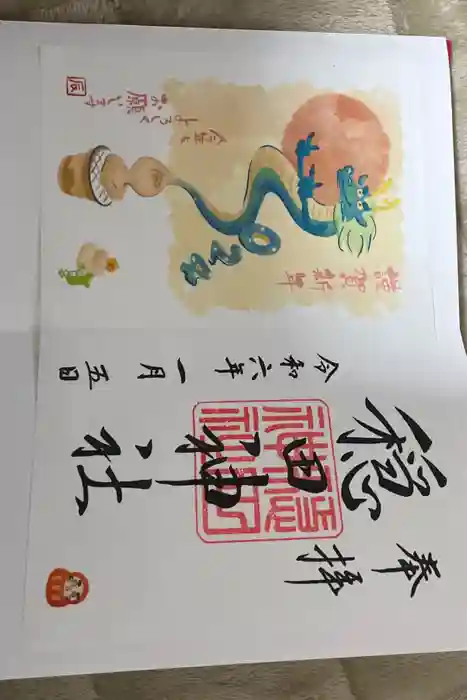 奉拝
穏田神社
令和六年一月五日
謹賀新年
2024
今年も
よろしく
お願いします
辰